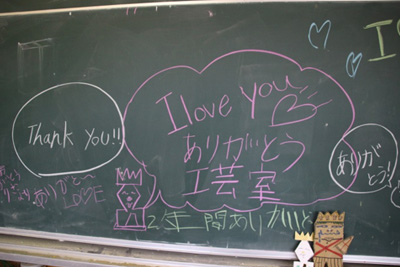 Thank You!!
I love you
ありがとう
工芸室
ありが
とう!
ありがと
LOVE
2年間ありがと
I